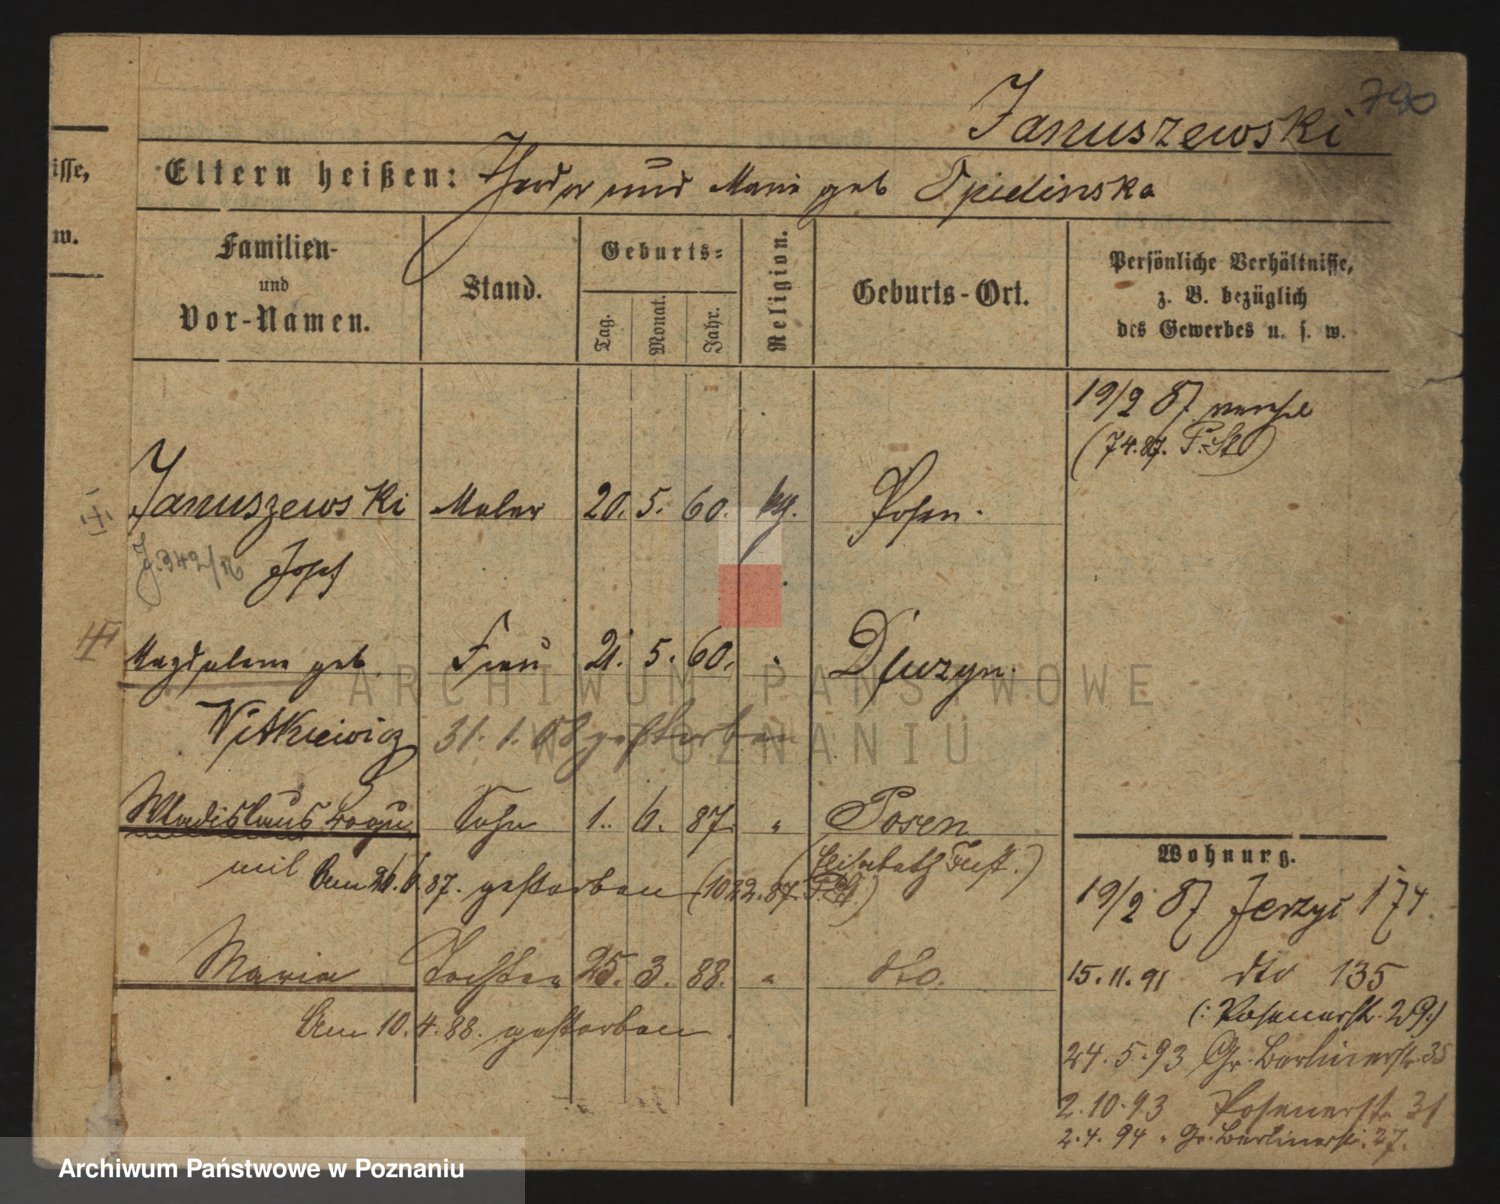 790
Januszewski
isse,
w.
Eltern heißen: Theodor und Marie geb Opielinska
Familien- und Vor-Namen.
Stand.
Geburts-
Tag. Monat. Jahr.
Religion.
Geburts-Ort.
Persönliche Verhältnisse,
z. B. bezüglich
des Gewerbes u. s. w.
19/2 87
(74.87.
Januszewski Maler 20. 5. 60. kth. Posen.
Josef
Magdalena geb. Frau 21. 5. 60. " Dłuzyn.
Witkiewicz 31. 1. 08 gestorben
Wladislaus Sohn 1. 6. 87. " Posen
Am 26/6 87. gestorben (1022. 87.
Maria Tochter 25. 3. 88. " dto.
Am 10. 4. 88. gestorben.
Wohnung.
19/2 87 Jerzyc 174.
15. 11. 91 dto 135
(: Posenerstr. 29:)
24. 5. 93 Gr. Berlinerstr. 35
2. 10. 93 Posenerstr. 31
2. 4. 94 " Gr. Berlinerstr. 27.
ARCHIWUM PAŃSTWOWE
W POZNANIU
Archiwum Państwowe w Poznaniu